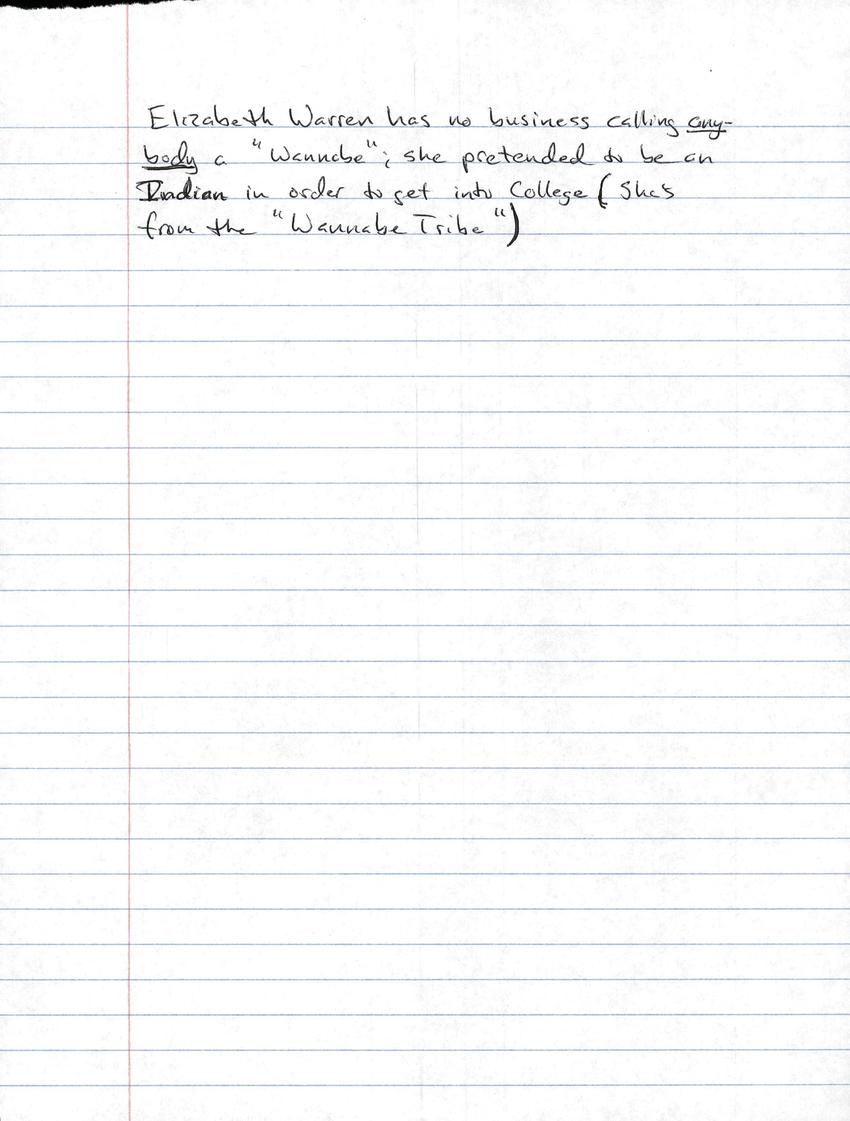 Elizabeth Warren has no business calling any-
body a "Wannabe"; she pretended to be an
Indian in order to get into College (She's
from the "Wannabe Tribe")